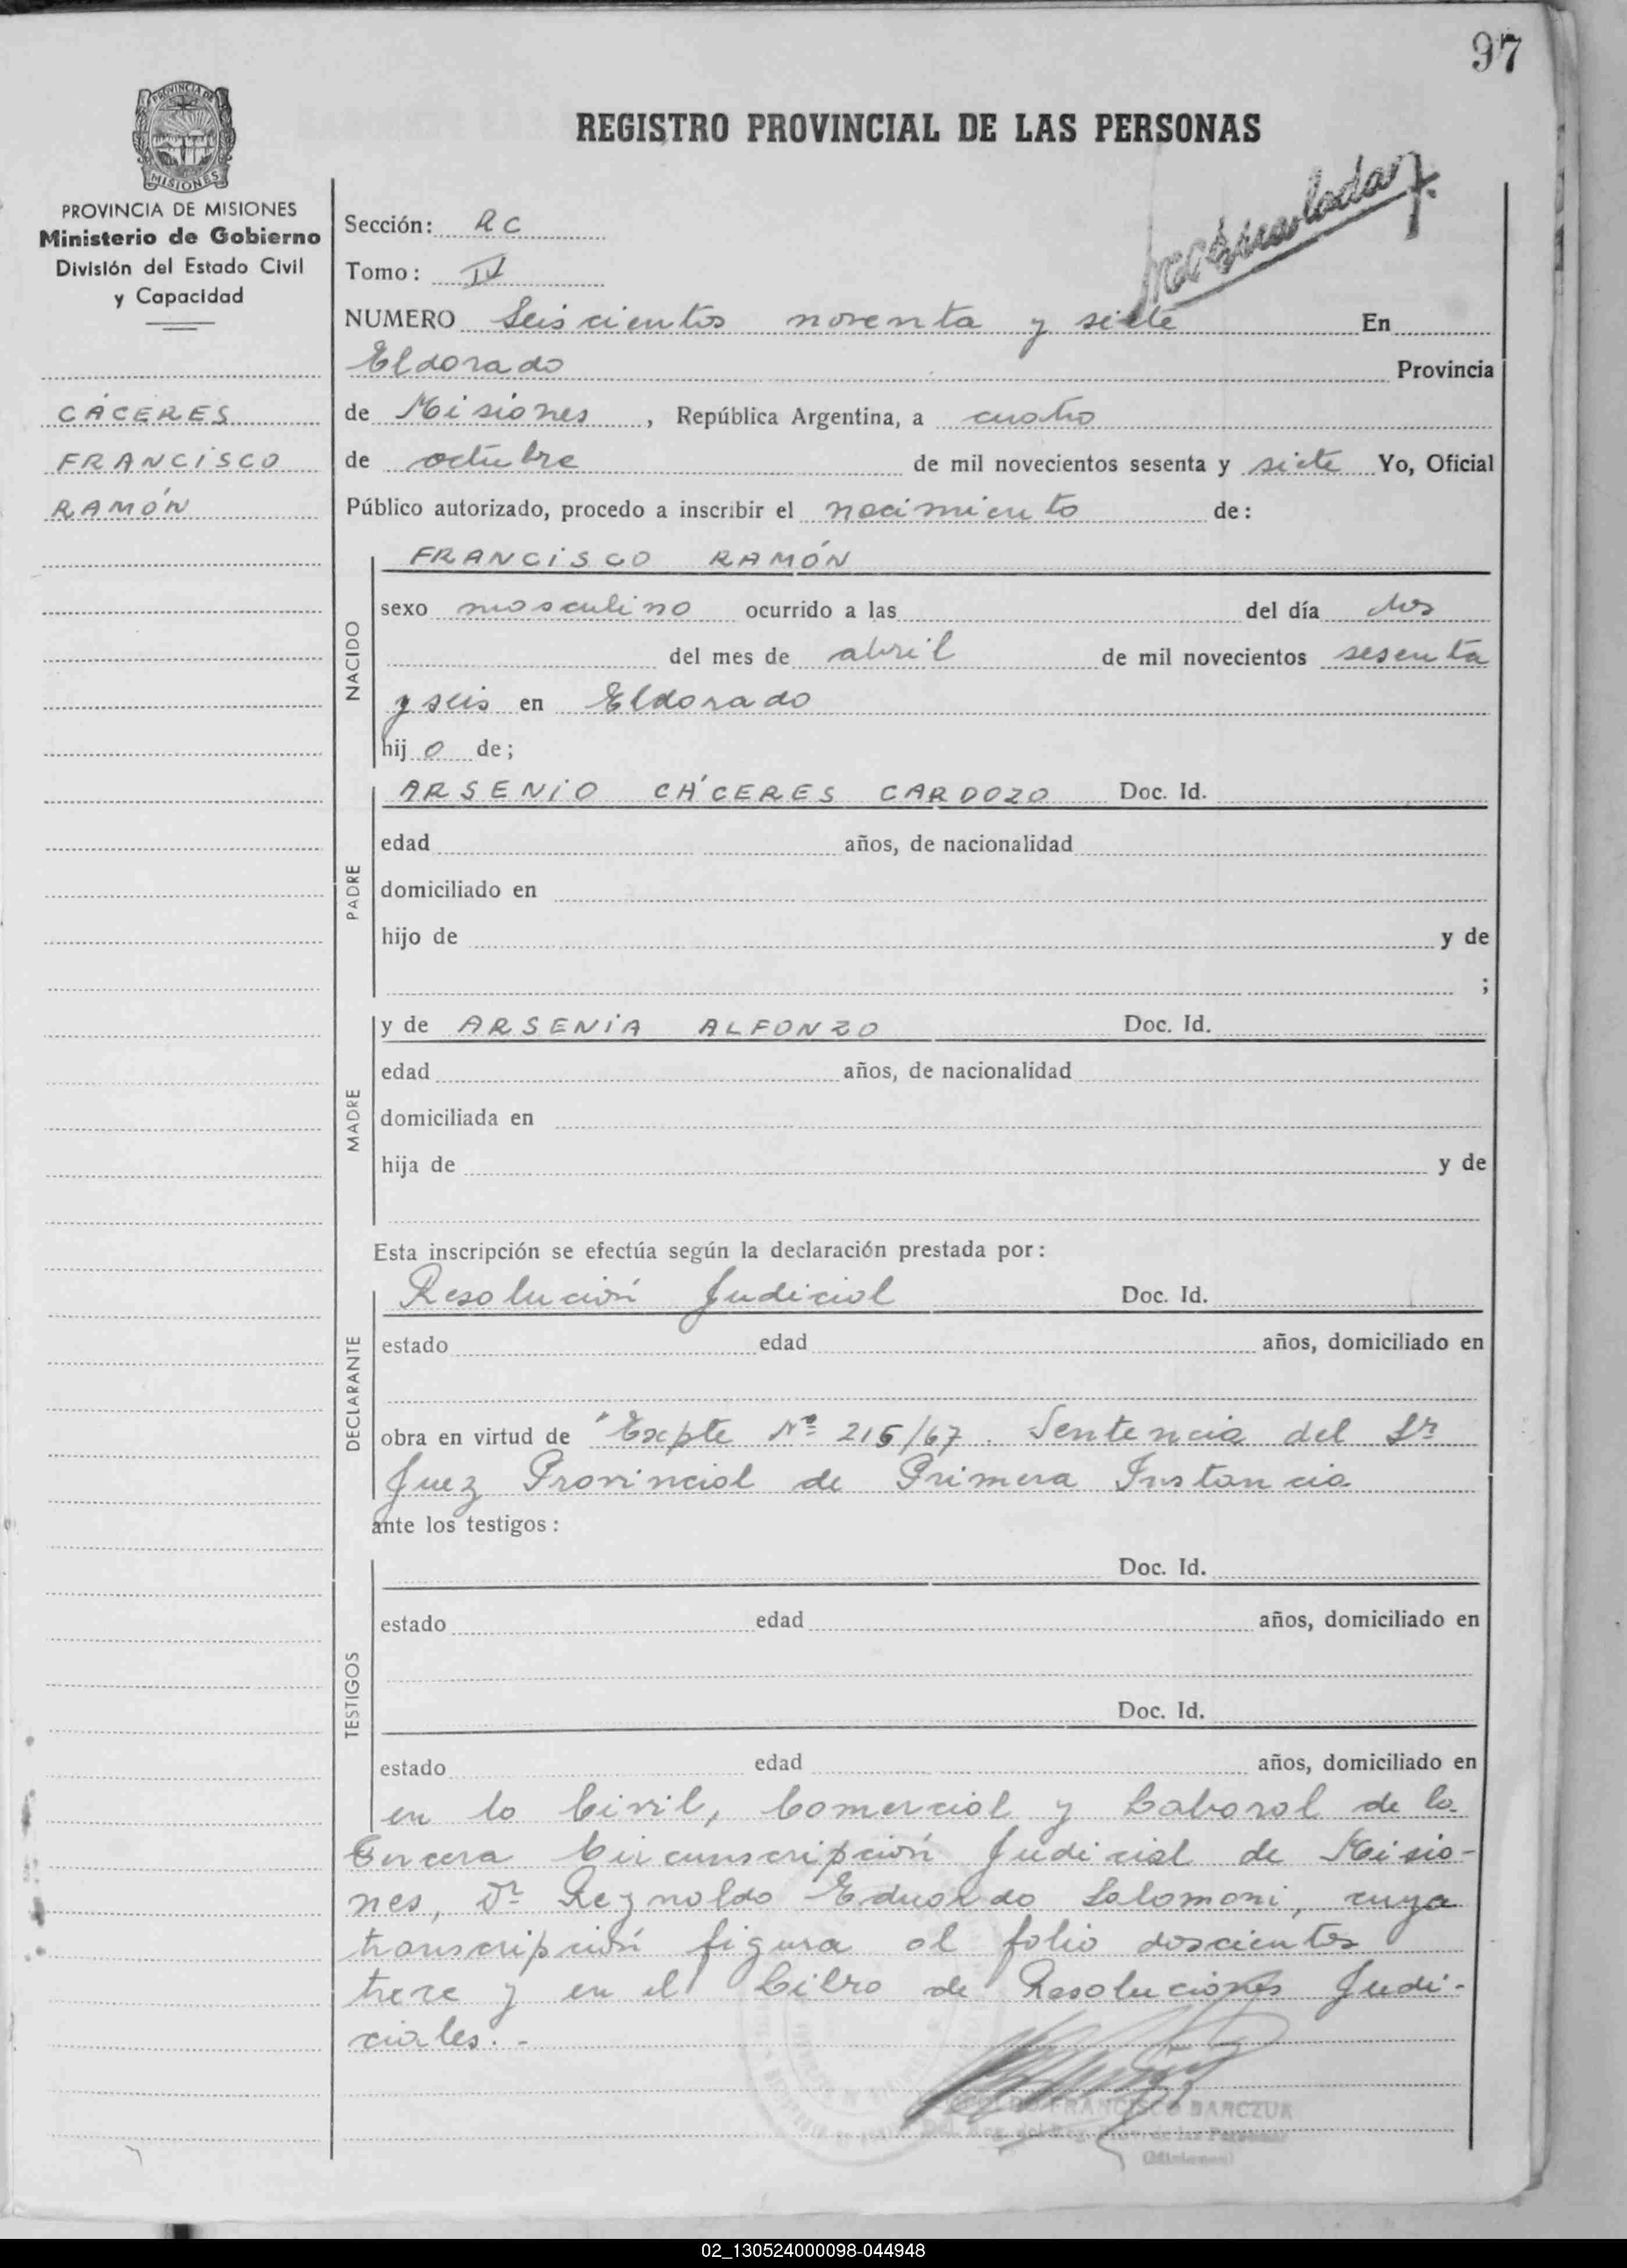 97
PROVINCIA DE
MISIONES
REGISTRO PROVINCIAL DE LAS PERSONAS
PROVINCIA DE MISIONES
Ministerio de Gobierno
División del Estado Civil
y Capacidad
CÁCERES
FRANCISCO
RAMÓN
Sección: RC
Tomo: IV
NUMERO Seiscientos noventa y siete En
Eldorado Provincia
de Misiones, República Argentina, a cuatro
de octubre de mil novecientos sesenta y siete Yo, Oficial
Público autorizado, procedo a inscribir el nacimiento de:
NACIDO
FRANCISCO RAMÓN
sexo masculino ocurrido a las del día dos
del mes de abril de mil novecientos sesenta
y seis en Eldorado
hij o de;
PADRE
ARSENIO CÁCERES CARDOZO Doc. Id.
edad años, de nacionalidad
domiciliado en
hijo de y de
;
MADRE
y de ARSENIA ALFONZO Doc. Id.
edad años, de nacionalidad
domiciliada en
hija de y de
Esta inscripción se efectúa según la declaración prestada por:
DECLARANTE
Resolución Judicial Doc. Id.
estado edad años, domiciliado en
obra en virtud de "Expte Nº 215/67. Sentencia del Sr
Juez Provincial de Primera Instancia
ante los testigos:
TESTIGOS
Doc. Id.
estado edad años, domiciliado en
Doc. Id.
estado edad años, domiciliado en
en lo Civil, Comercial y Laboral de la
Tercera Circunscripción Judicial de Misio-
nes, Dr Reynaldo Eduardo Salomoni, cuya
transcripción figura al folio doscientos
trece y en el Libro de Resoluciones Judi-
ciales.-
FRANCISCO BARCZUK
(Misiones)
02_130524000098-044948